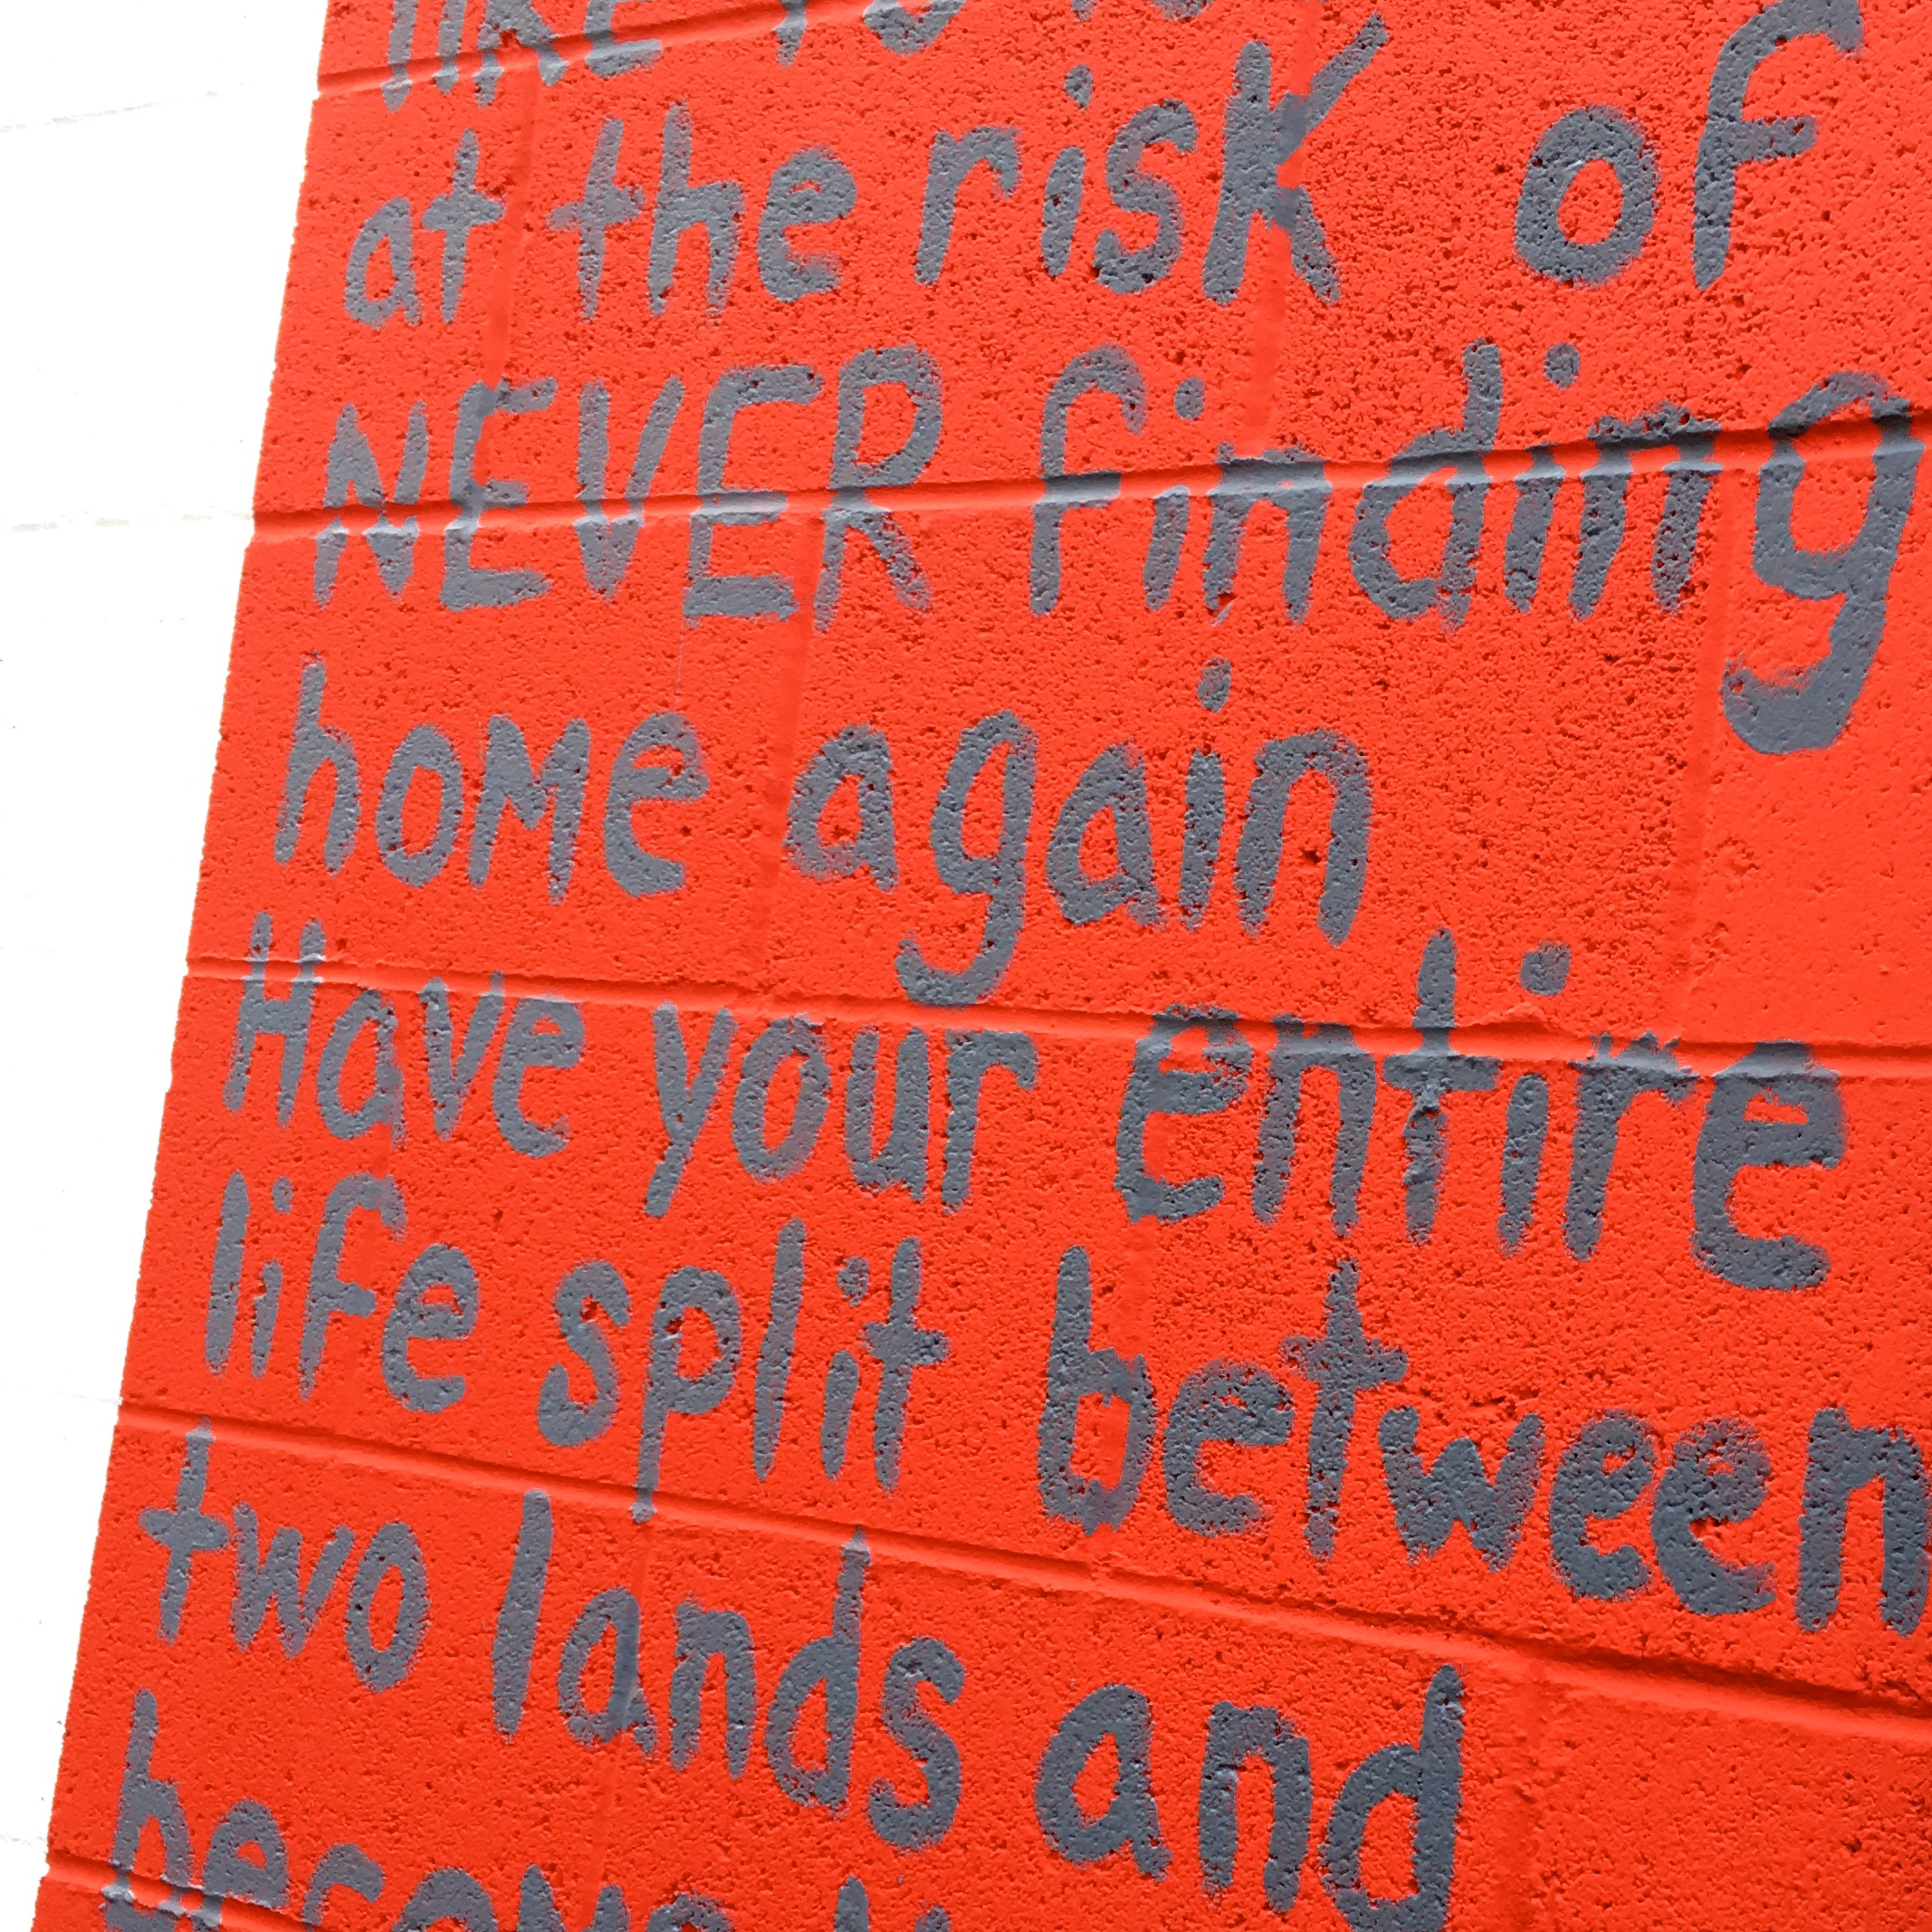 like
at the risk of
NEVER finding
home again
Have your entire
life split between
two lands and
become